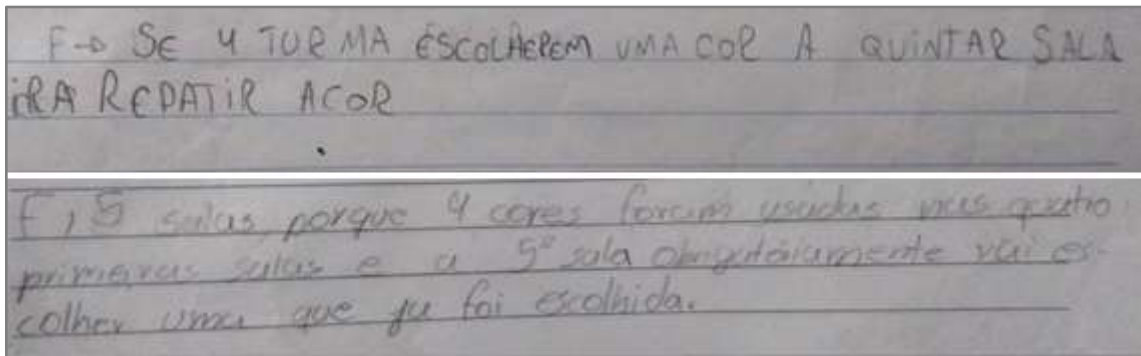 F→ SE 4 TURMA ESCOLHEREM UMA COR A QUINTAR SALA
IRA REPATIR ACOR
F, 5 salas porque 4 cores foram usadas nas quatro
primeiras salas e a 5ª sala obrigatóriamente vai es-
colher uma que ja foi escolhida.